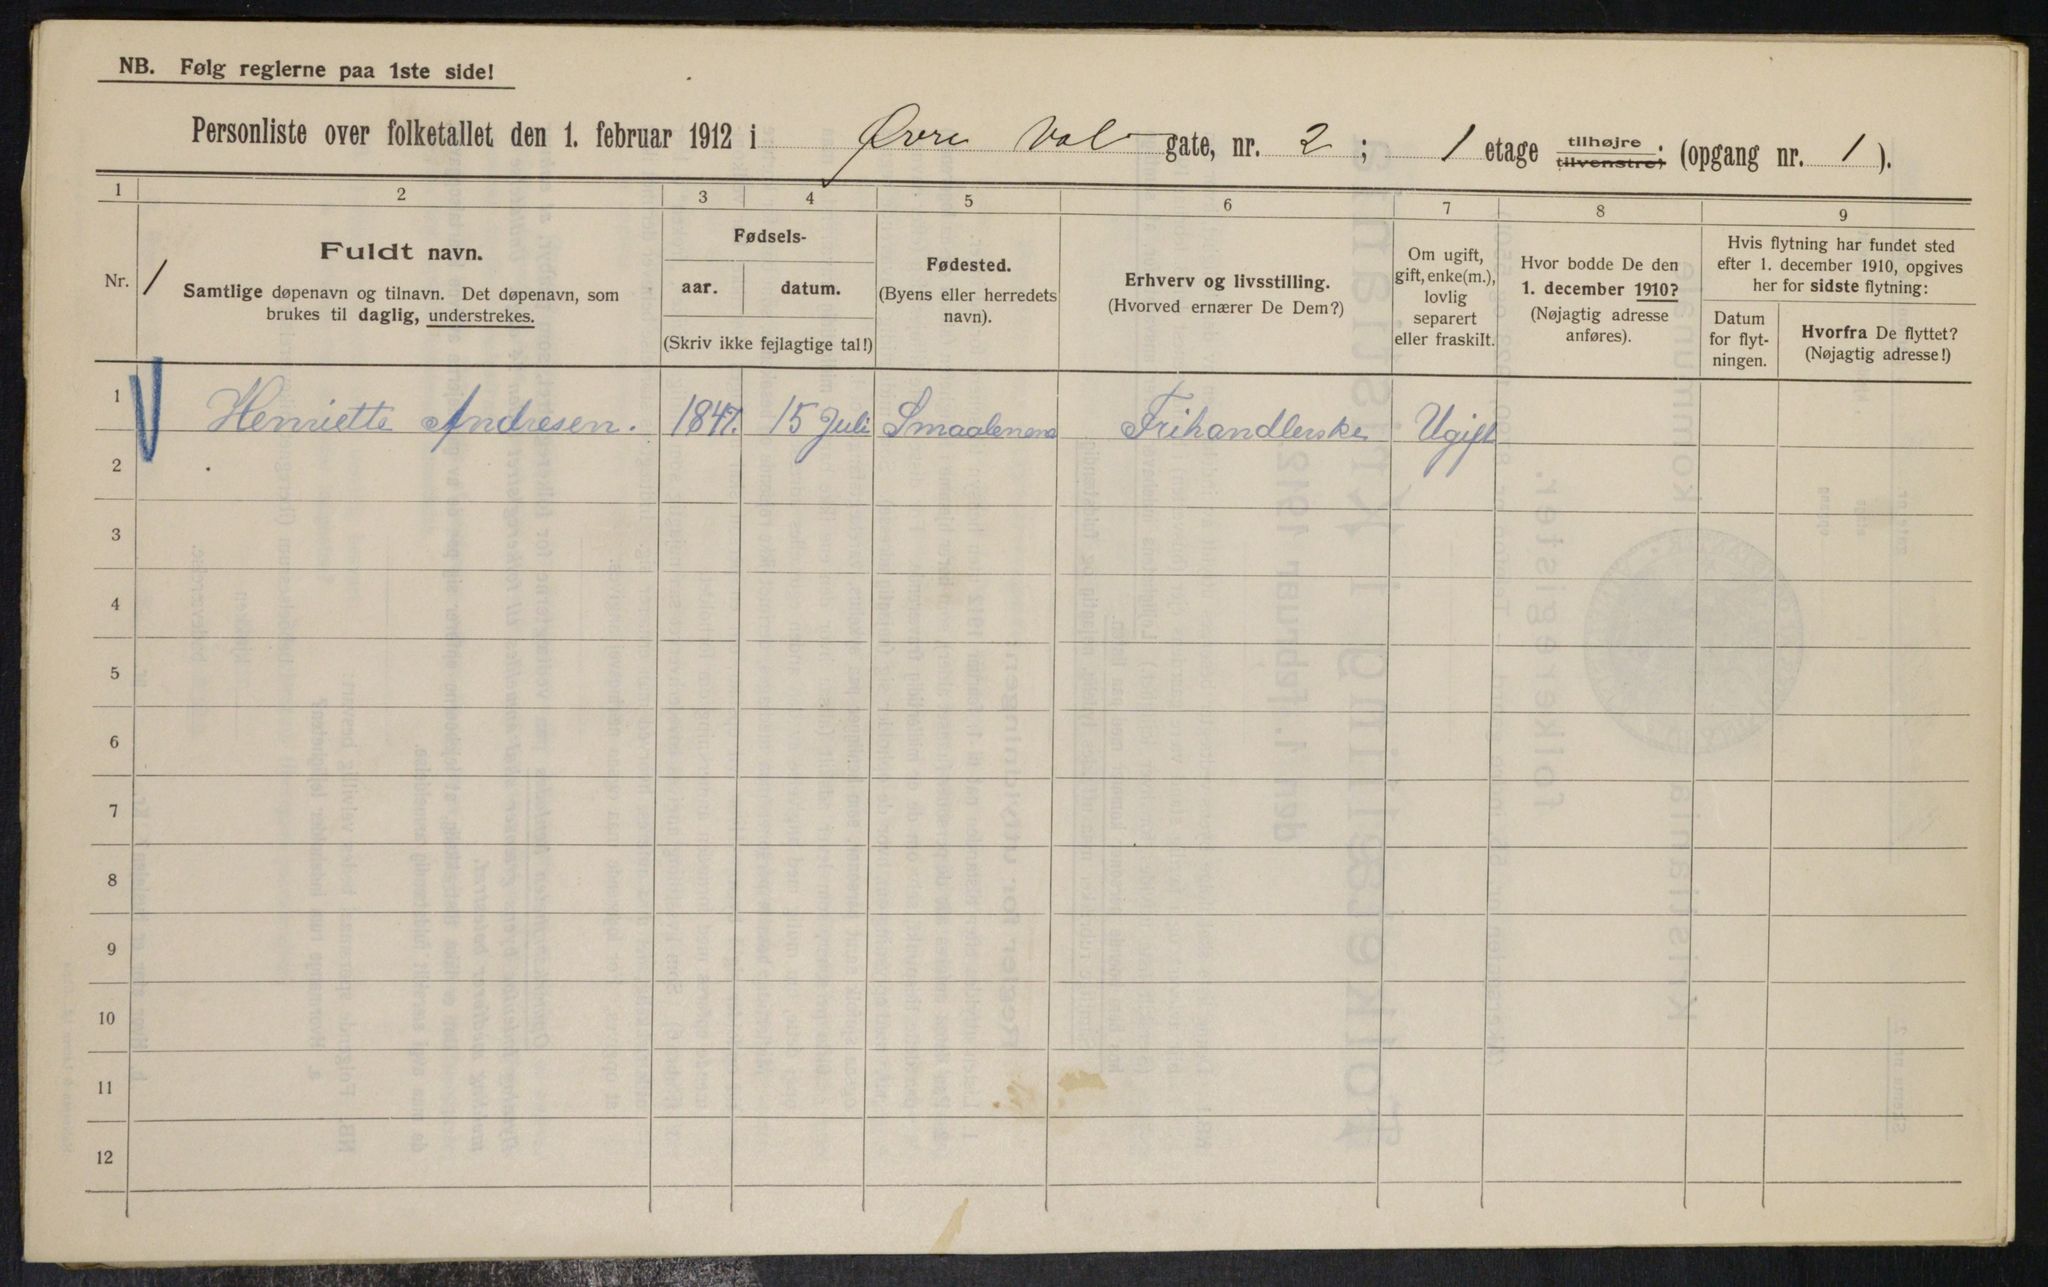 NB. Følg reglerne paa 1ste side!
Personliste over folketallet den 1. februar 1912 i Øvre Vol gate, nr. 2; 1 etage tilhøjre tilvenstre, (opgang nr. 1).
1 2 3 4 5 6 7 8 9
Nr. 1
Fuldt navn.
Samtlige døpenavn og tilnavn. Det døpenavn, som
brukes til daglig, understrekes.
Fødsels-
aar. datum.
(Skriv ikke fejlagtige tal!)
Fødested.
(Byens eller herredets
navn).
Erhverv og livsstilling.
(Hvorved ernærer De Dem?)
Om ugift,
gift, enke(m.),
lovlig
separert
eller fraskilt.
Hvor bodde De den
1. december 1910?
(Nøjagtig adresse
anføres).
Hvis flytning har fundet sted
efter 1. december 1910, opgives
her for sidste flytning:
Datum
for flyt-
ningen.
Hvorfra De flyttet?
(Nøjagtig adresse!)
1 Henriette Andresen. 1847. 15 Juli Smaalenene Frihandlerske Ugift
2
3
4
5
6
7
8
9
10
11
12